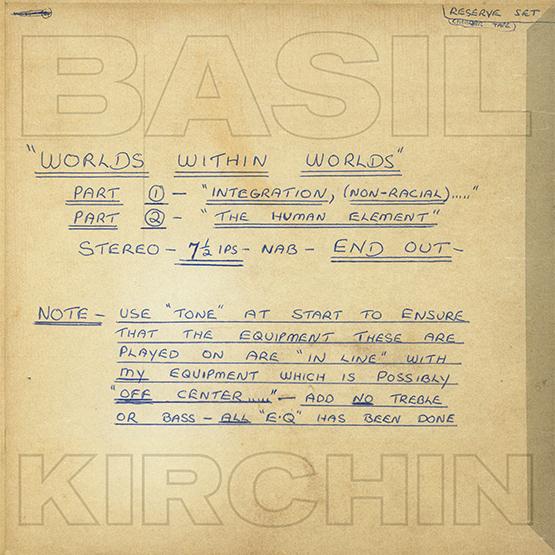 RESERVE SET
BASIL
"WORLDS WITHIN WORLDS"
PART ① — "INTEGRATION, (NON-RACIAL)....."
PART ② - "THE HUMAN ELEMENT"
STEREO - 7½ IPS - NAB - END OUT -
NOTE - USE "TONE" AT START TO ENSURE
THAT THE EQUIPMENT THESE ARE
PLAYED ON ARE "IN LINE" WITH
MY EQUIPMENT WHICH IS POSSIBLY
"OFF CENTER....." - ADD NO TREBLE
OR BASS - ALL "E.Q" HAS BEEN DONE
KIRCHIN